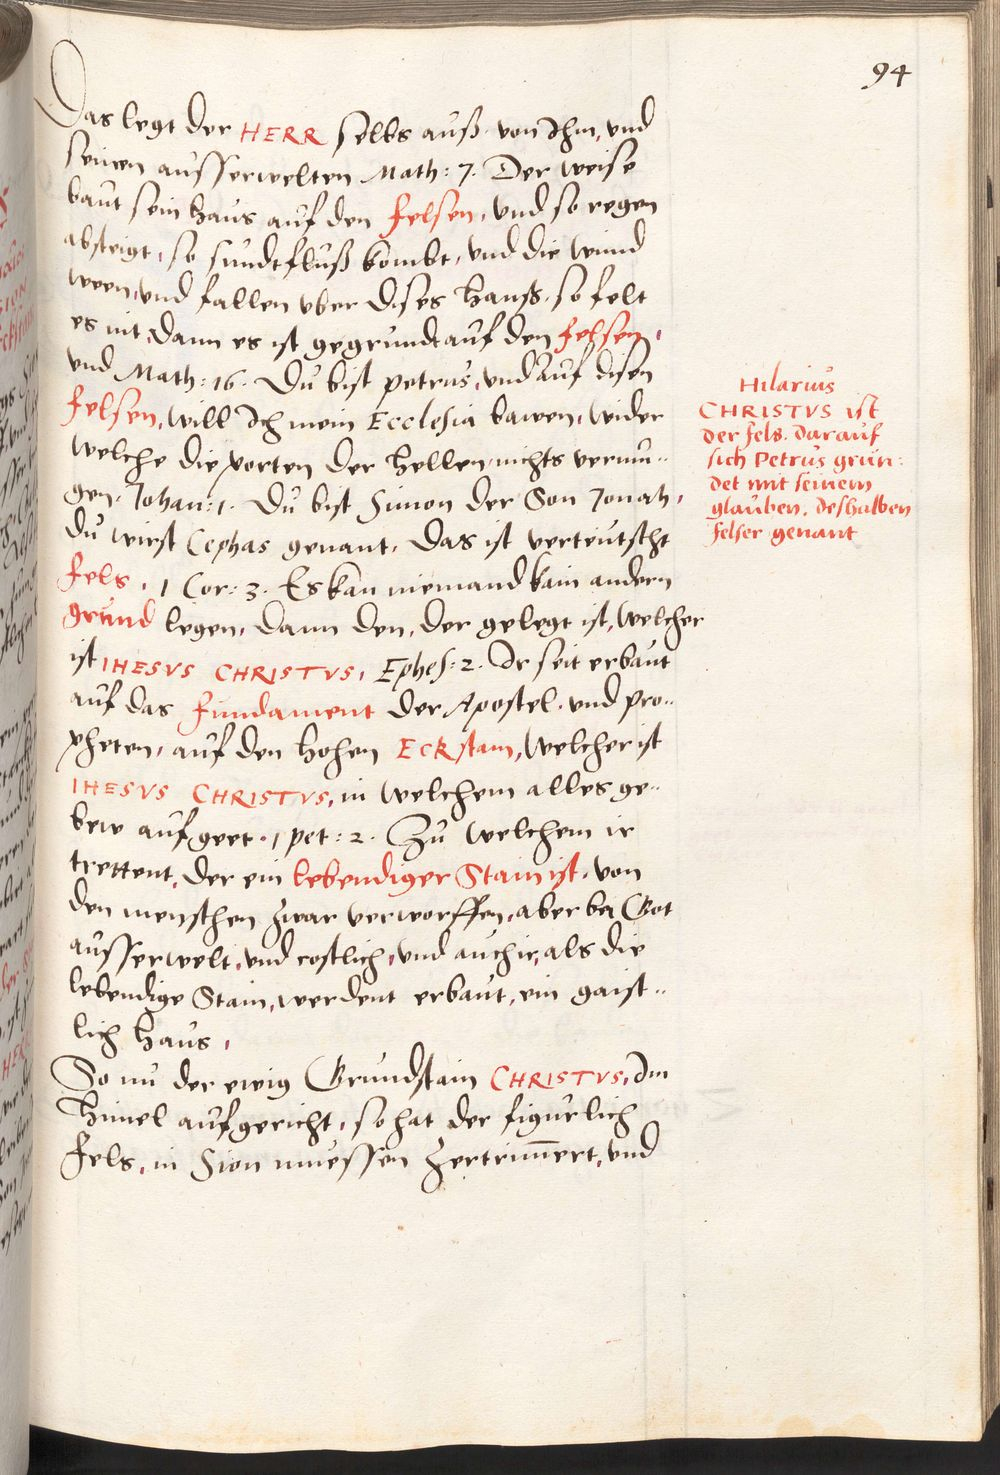 94
Das legt der HERR selbs auß. von Ihm, vnd
seinen ausserwelten Math: 7. Der weise
baut sein Haus auf den felsen, vnd so regen
absteigt, so sundtfluß kombt, vnd die wind
ween, vnd fallen vber dises Hauß. so felt
es nit, dann es ist gegrundt auf den felsen,
vnd Math: 16. Du bist petrus, vnd auf disen
felsen, will Ich mein Ecclesia bawen, wider
welche die porten der Hellen, nichts vermu„
gen. Johan: 1. Du bist Simon der Son Jonah,
du wirst Cephas genant, Das ist verteutscht
fels, 1 Cor: 3. Es kan niemand kain andern
grund legen, dann den, der gelegt ist, welcher
ist IHESVS CHRISTVS, Ephes: 2. Ir seit erbaut
auf das fundament der Apostel, vnd pro„
pheten, auf den Hohen Eckstain, welcher ist
IHESVS CHRISTVS, in welchem alles ge„
bew aufgeet. 1 pet: 2. Zu welchem ir
trettent, der ein lebendiger Stain ist, von
den menschen zwar verworffen, aber bei Got
ausserwelt, vnd costlich, vnd auch ir, als die
lebendige Stain, werdent erbaut, ein gaist„
lich Haus,
So nu der ewig Grundstain CHRISTVS, Im
Himel aufgericht, so hat der figurlich
fels, in Sion muessen zertrim̄ert, vnd
Hilarius
CHRISTVS ist
der fels. darauf
sich Petrus grün:
det mit seinem
glauben, deshalben
felser genant